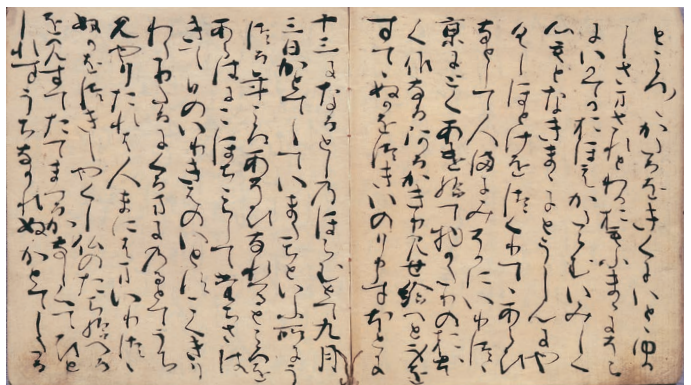 ところ〳〵かたるをきくにいとゝゆか
しさまされとわかおもふまゝにそら
にいかてかおほえかたらむいみしく
心もとなきまゝにとうしんにや
くしほとけをつくりててあらひ
なとして人まにみそかにいりつゝ
京にとくあけ給て物かたりのおほ
く候なるあるかきり見せ給へと身を
すてゝぬかをつきいのり申すほとに
十三になるとしのほらむとて九月
三日かとてしていまたちといふ所にう
つる年ころあそひなれつるところを
あらはにこほちちらしてたちさは
きて日のいりきはのいとすこくきり
わたりたるにくるまにのるとてうち
見やりたれは人まにはまいりつゝ
ぬかをつきしやくし仏のたち給へる
を見すてたてまつるかなしくてひと
しれすうちなかれぬかとてしたる